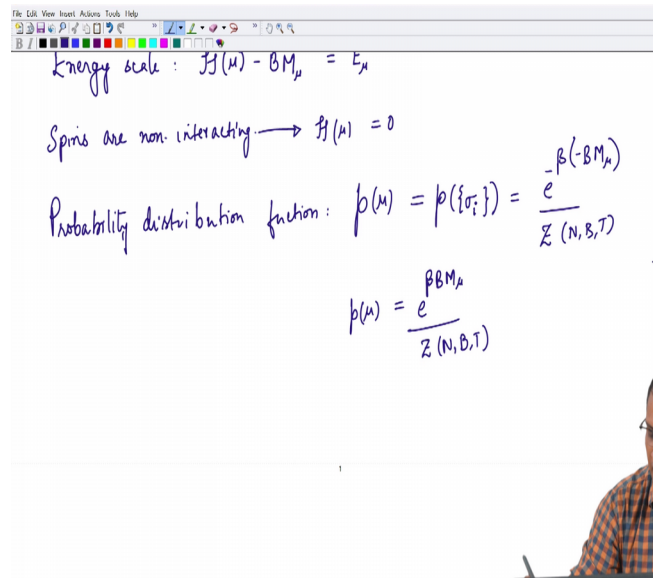 File Edit View Insert Actions Tools Help
B I
Energy scale : H(μ) - BM_μ = E_μ
Spins are non-interacting. → H(μ) = 0
Probability distribution fuction : p(μ) = p({σ_i}) = e^{-β(-BM_μ)} / Z (N,B,T)
p(μ) = e^{βBM_μ} / Z (N,B,T)
1